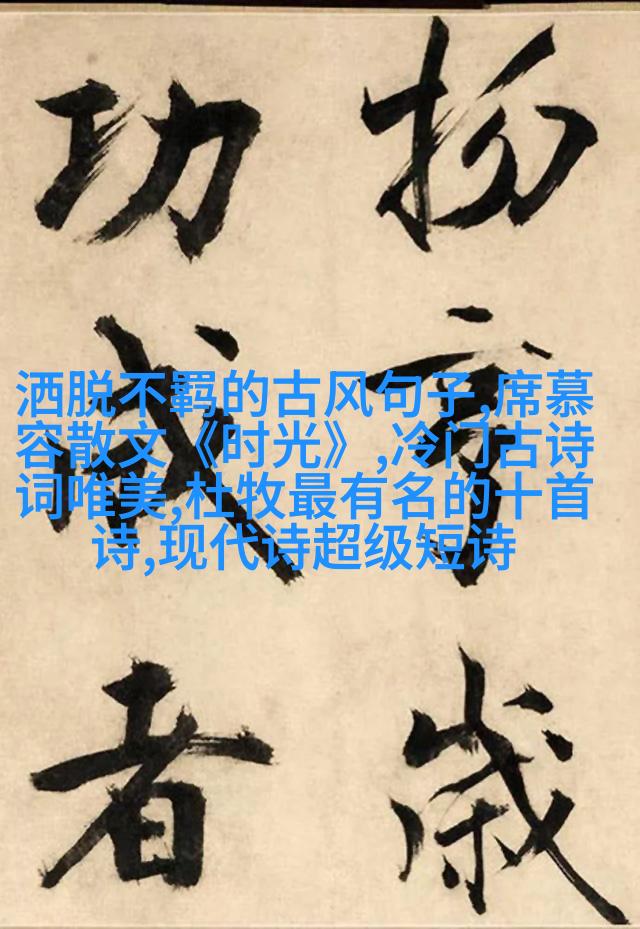 歲
功成者
洒脱不羁的古风句子,席慕
容散文《时光》,冷门古诗
词唯美,杜牧最有名的十首
诗,现代诗超级短诗